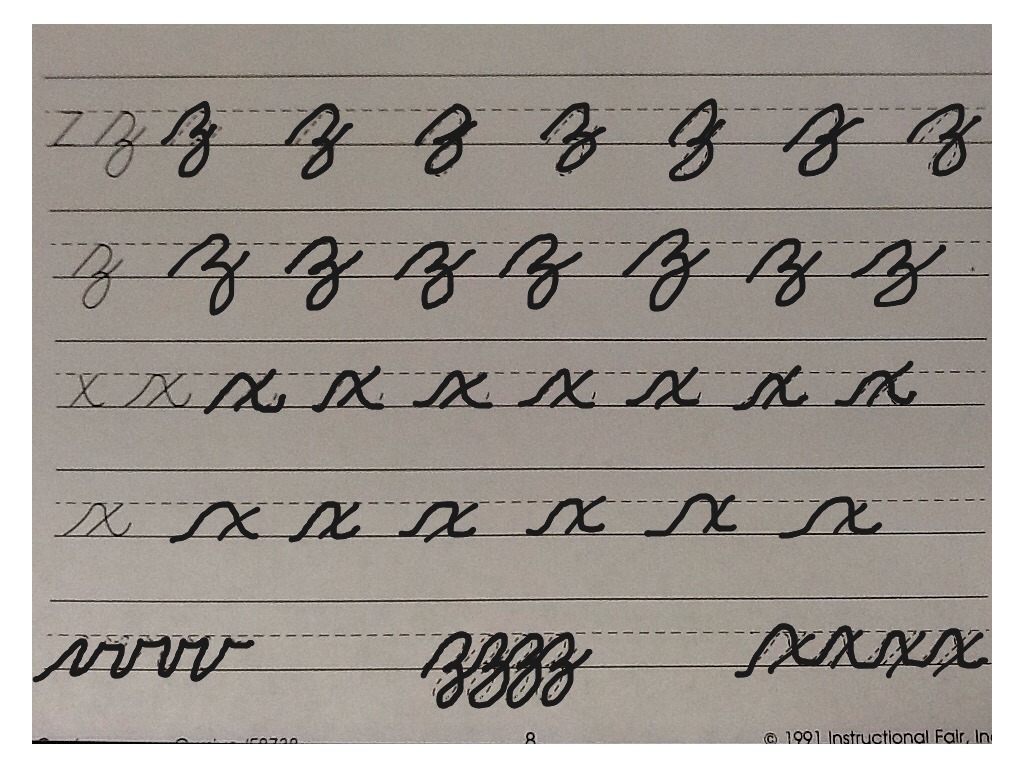 z z z z z z z z z
z z z z z z z z
x x x x x x x x x
x x x x x x x
vvvv zzzz xxxx
8 © 1991 Instructional Fair, Inc